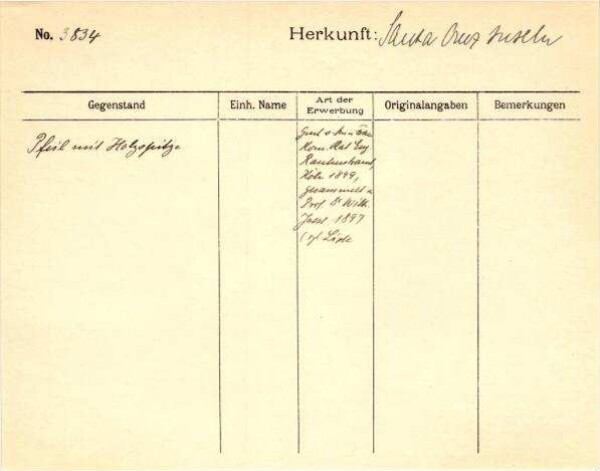 No. 3834 Herkunft: Santa Cruz Inseln
Gegenstand Einh. Name Art der Erwerbung Originalangaben Bemerkungen
Pfeil mit Holzspitze
Kom. Rat Eug.
Rautenstrauch,
Köln 1899,
gesammelt v.
Prof. Dr Wilh.
Joest 1897
Liste